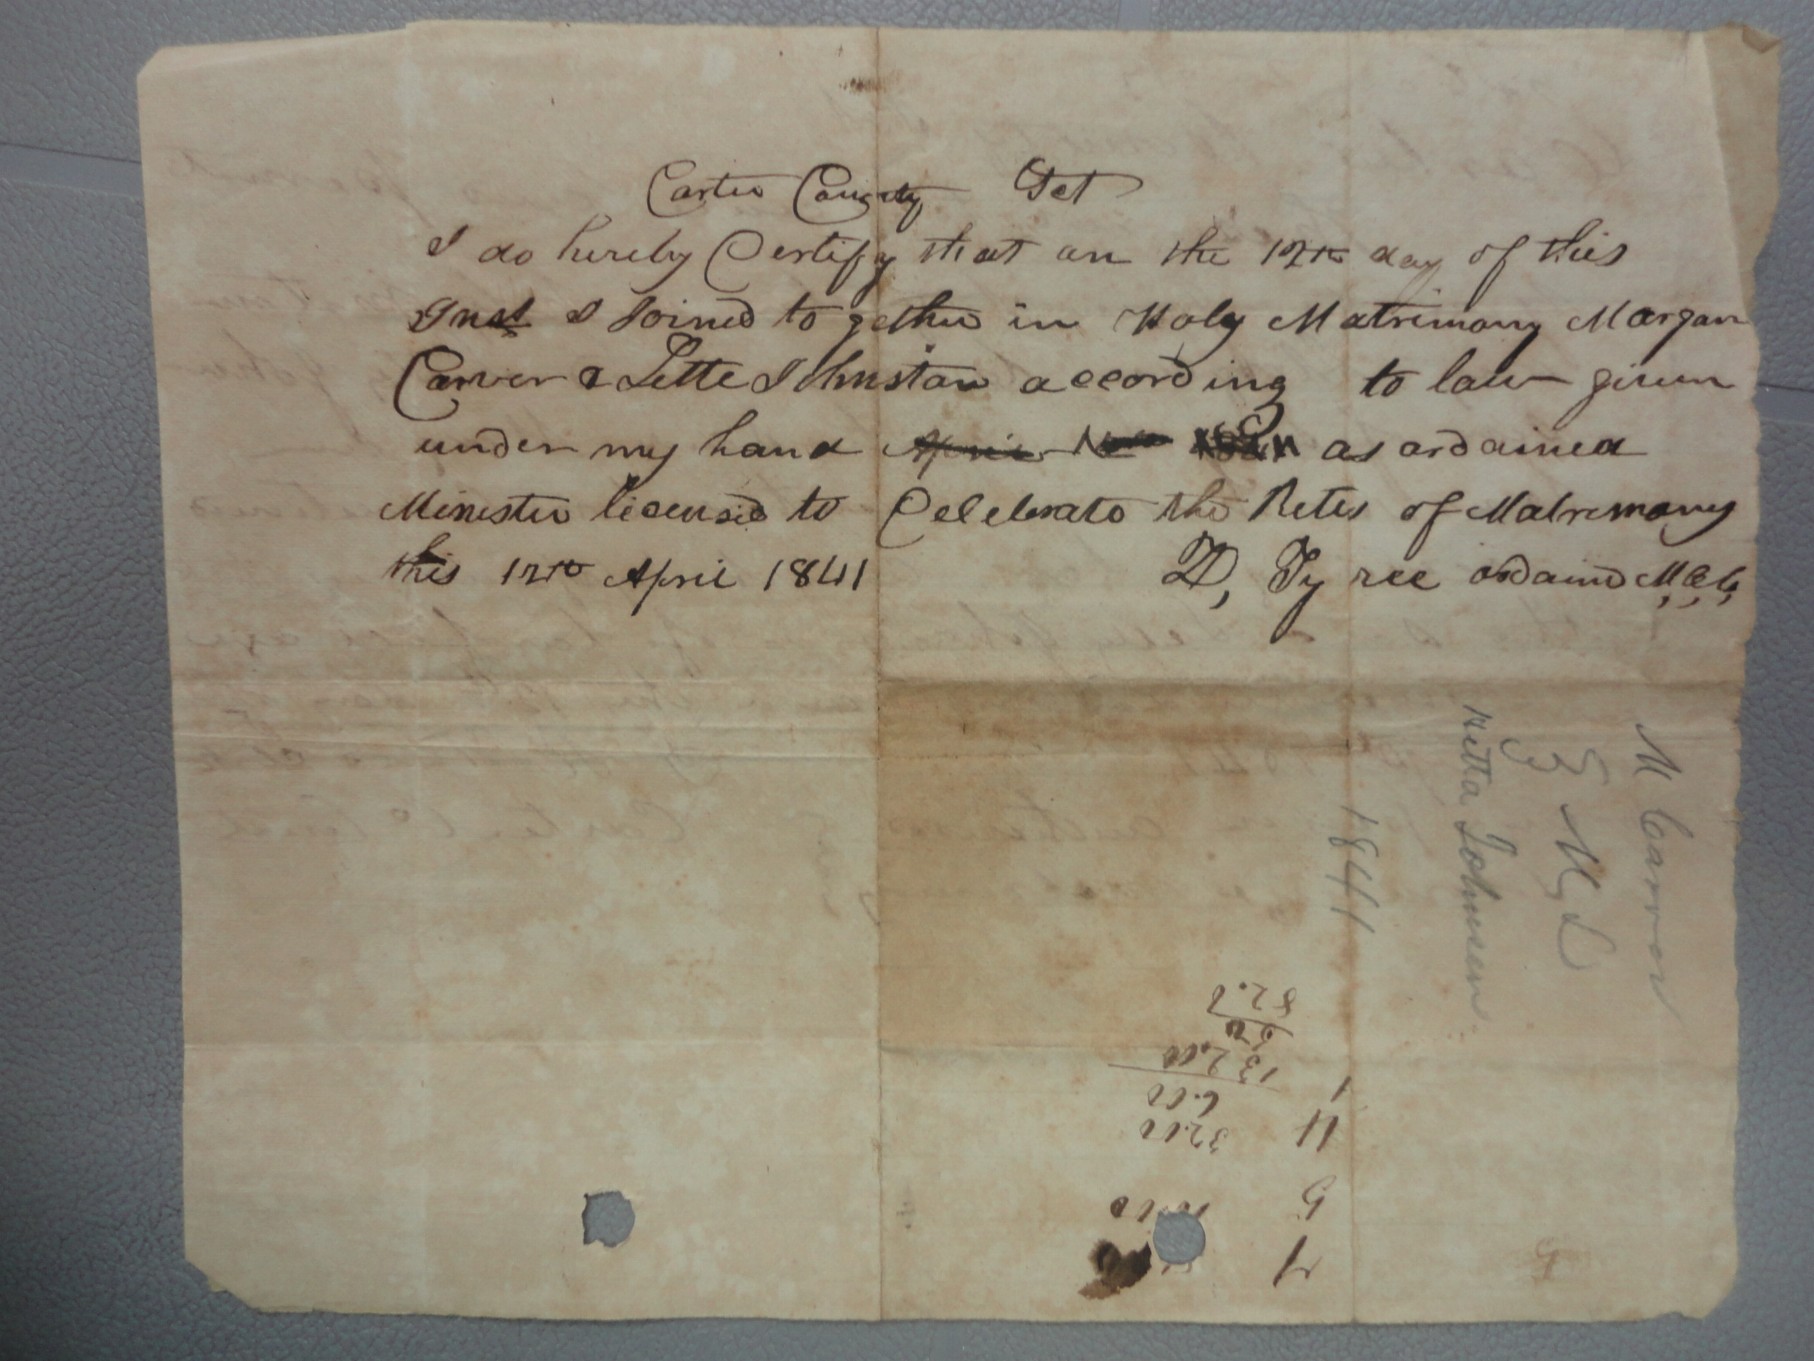 Carter County Sct
I do hereby Certify that on the 12th day of this
Inst I Joined to gether in Holy Matrimony Morgan
Carver & Lette Johnston according to law given
under my hand April as ordained
Minester licensed to Celebrate the Retes of Matremony
this 12th April 1841 D, Tyree ordaind M, C, C,
M Carver
M L
Netta Johnson.
1841
32.00
6.00
132.00